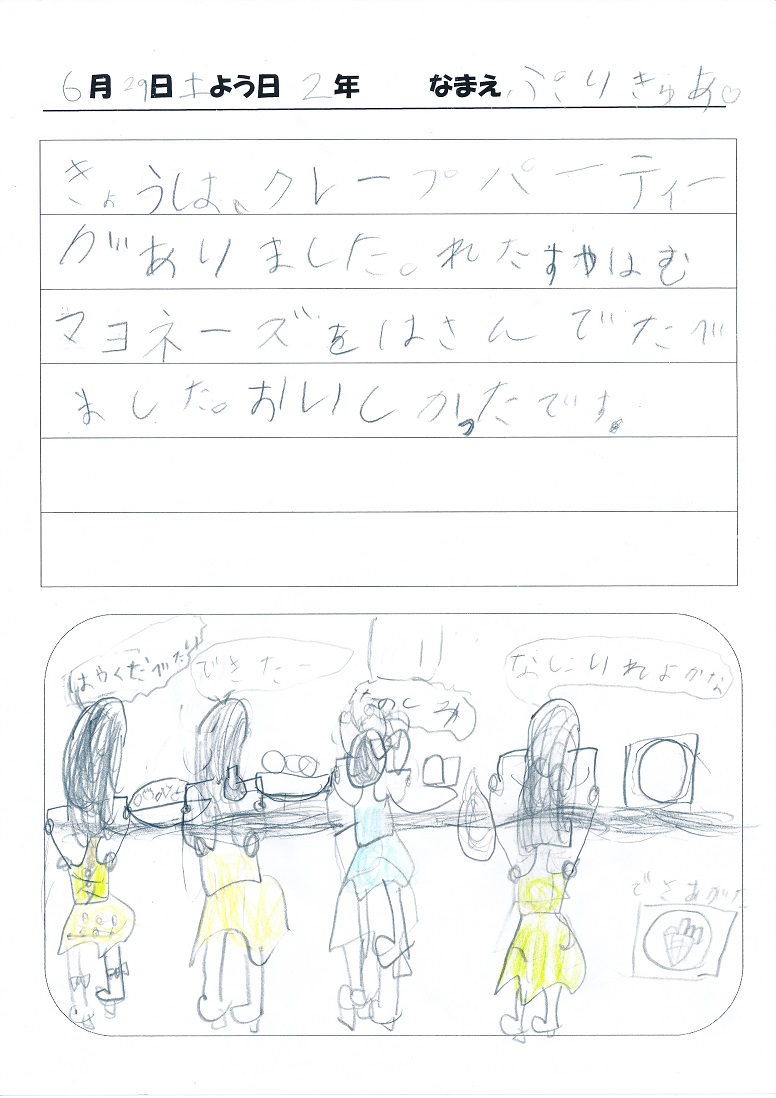 6月29日土よう日 2年 なまえ ぷりきゅあ♡
きょうは、クレープパーティー
がありました。れたすやはむ
マヨネーズをはさんでたべ
ました。おいしかったです。
はやくたべたい
できたー
たのしみ
なしにいれよかな
できあがた